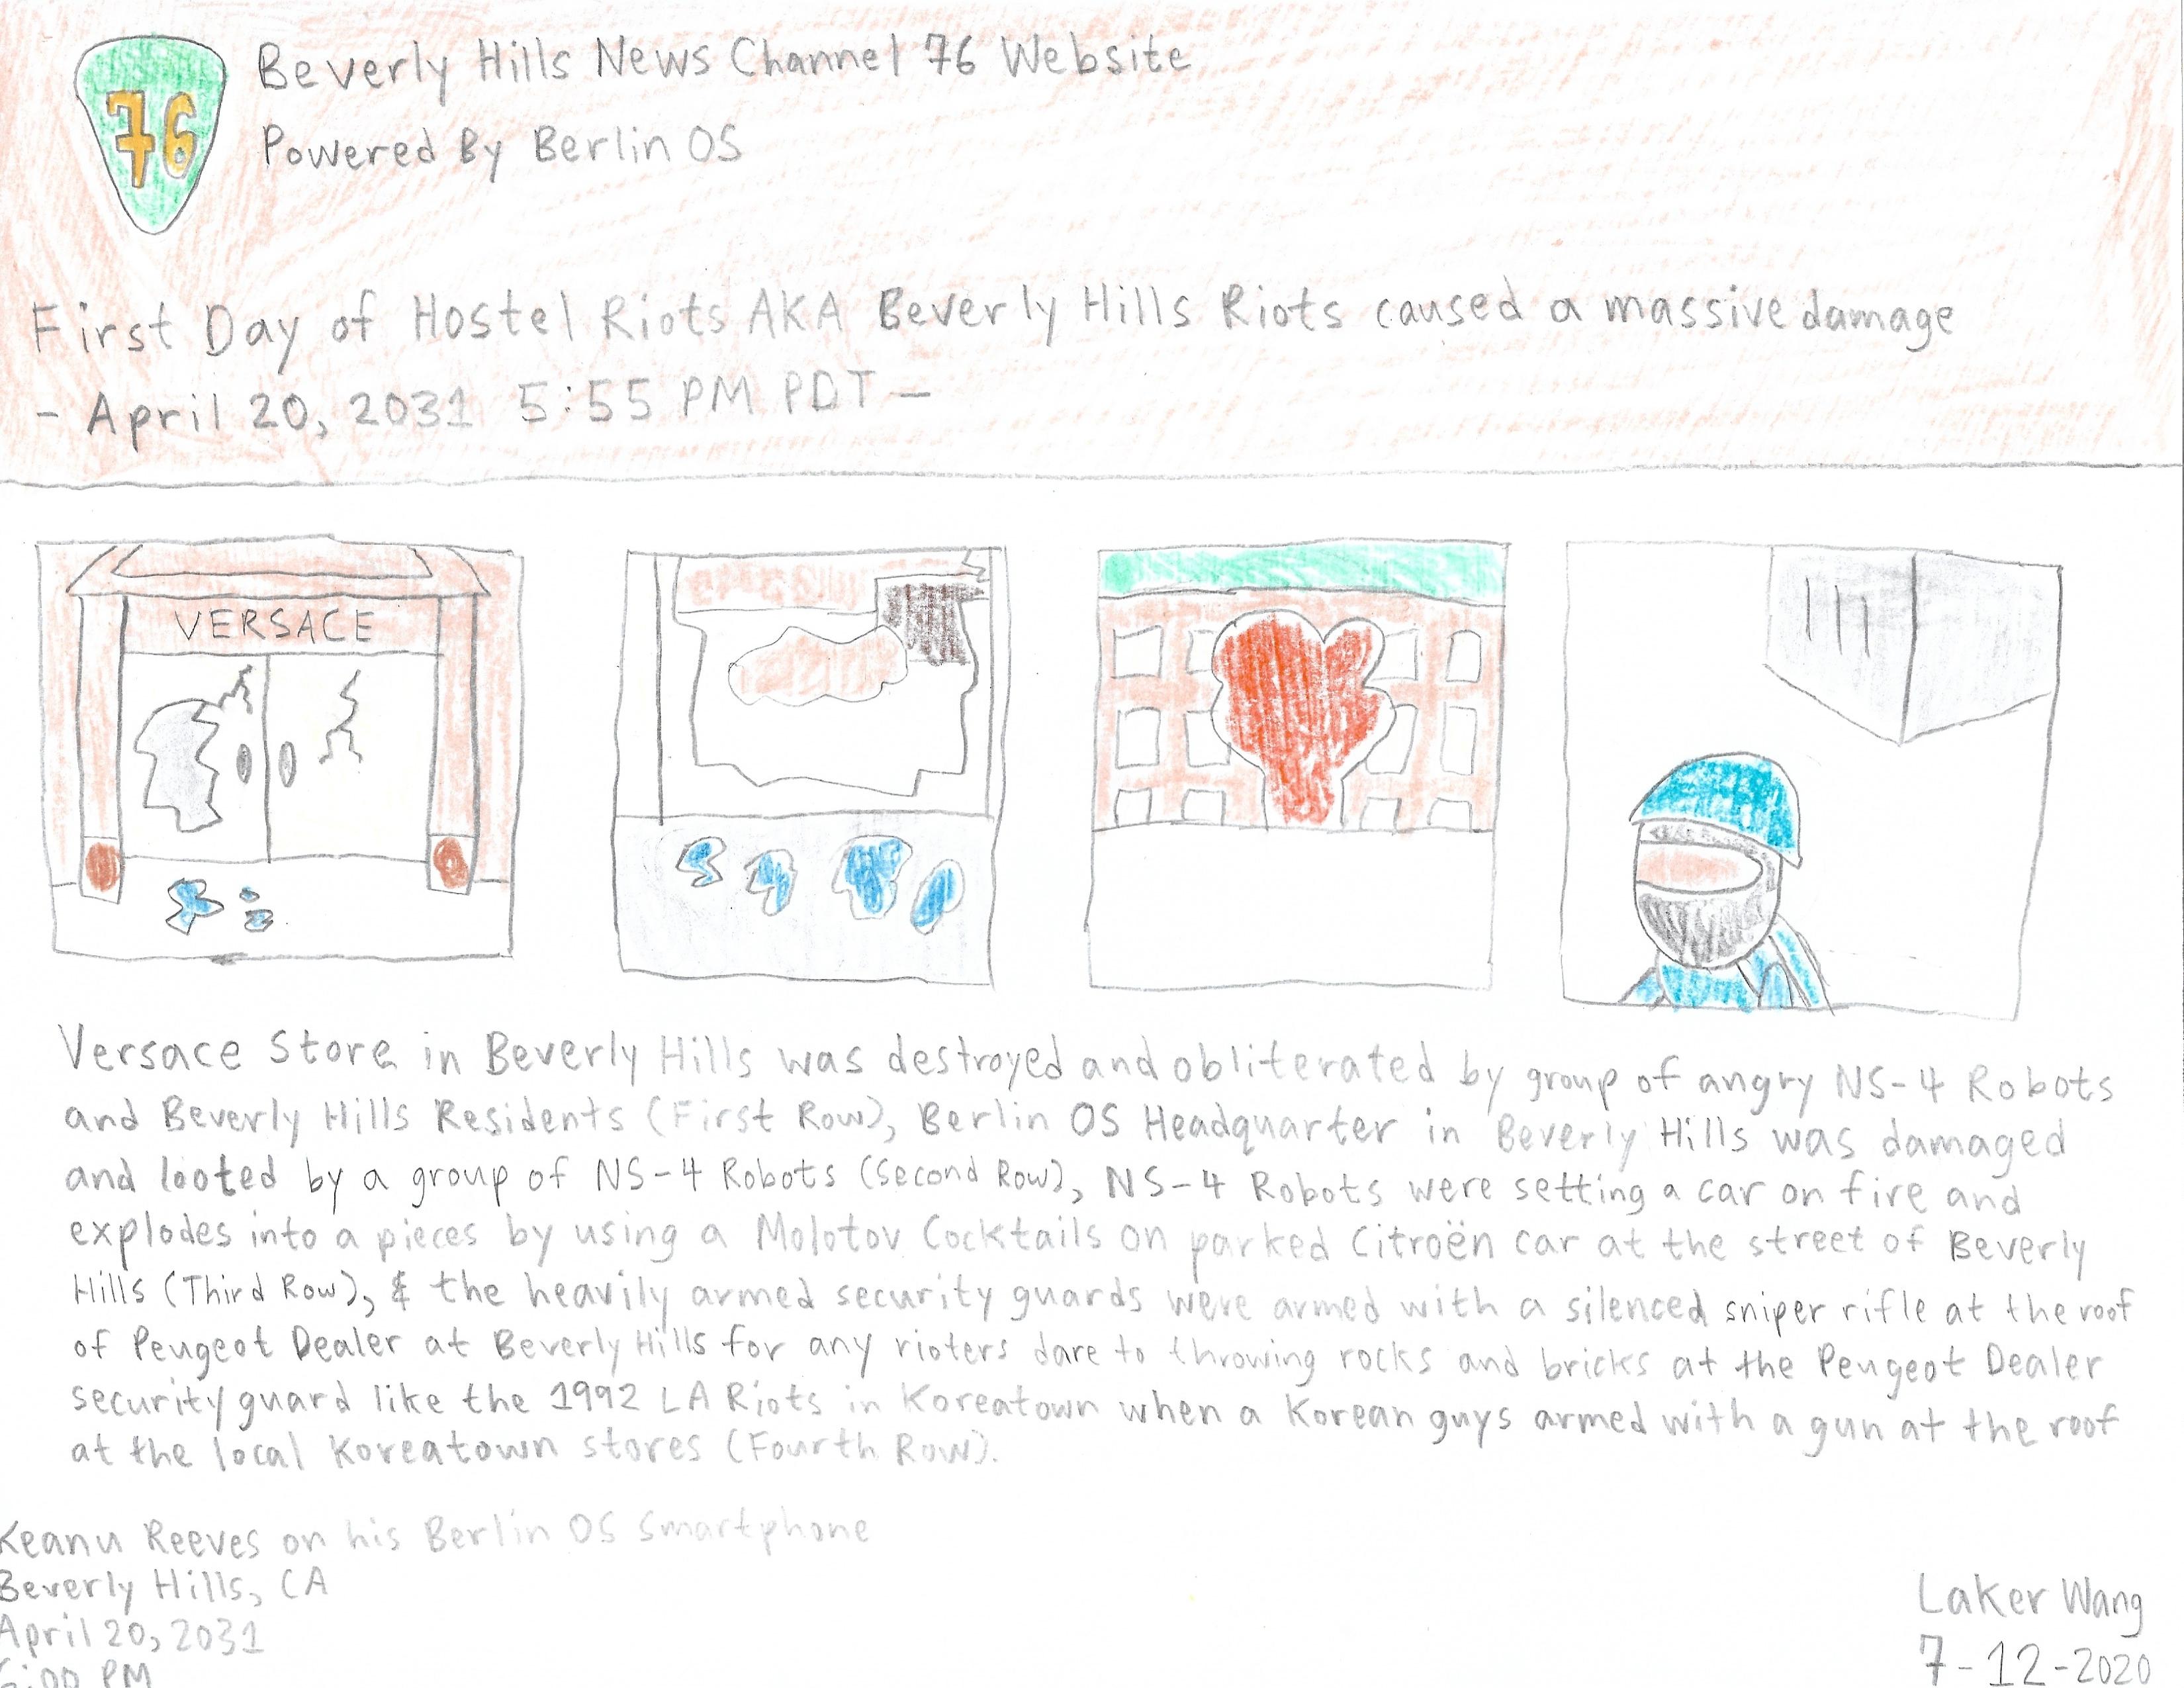 76
Beverly Hills News Channel 76 Website
Powered By Berlin OS
First Day of Hostel Riots AKA Beverly Hills Riots caused a massive damage
- April 20, 2031 5:55 PM PDT -
VERSACE
Versace Store in Beverly Hills was destroyed and obliterated by group of angry NS-4 Robots
and Beverly Hills Residents (First Row), Berlin OS Headquarter in Beverly Hills was damaged
and looted by a group of NS-4 Robots (Second Row), NS-4 Robots were setting a car on fire and
explodes into a pieces by using a Molotov Cocktails on parked Citroën car at the street of Beverly
Hills (Third Row), & the heavily armed security guards were armed with a silenced sniper rifle at the roof
of Peugeot Dealer at Beverly Hills for any rioters dare to throwing rocks and bricks at the Peugeot Dealer
security guard like the 1992 LA Riots in Koreatown when a Korean guys armed with a gun at the roof
at the local Koreatown stores (Fourth Row).
Keanu Reeves on his Berlin OS Smartphone
Beverly Hills, CA
April 20, 2031
6:00 PM
Laker Wang
7-12-2020